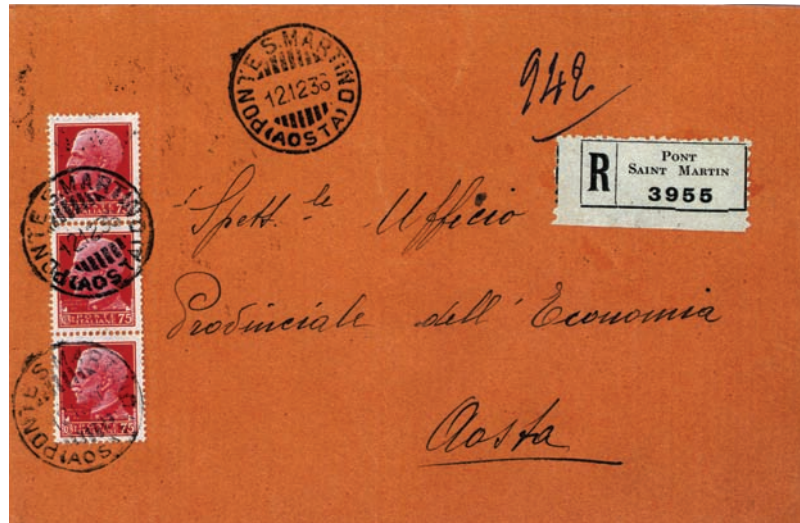 PONTE S. MARTINO
12.12.36
(AOSTA)
942
R
PONT
SAINT MARTIN
3955
75
PONTE S. MARTINO
12.12.36
(AOSTA)
POSTE
ITALIANE
75
75
PONTE S. MARTINO
(AOSTA)
Spett.le Ufficio
Provinciale dell'Economia
Aosta